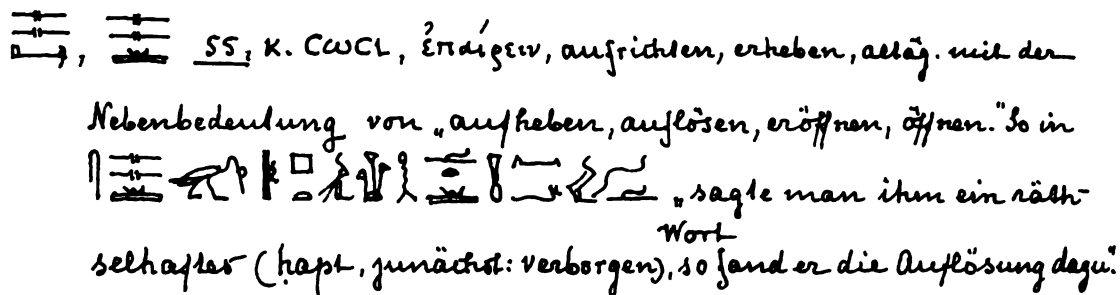 , ss, K. CωCI, ἐπαίρειν, aufrichten, erheben, altäg. mit der
Nebenbedeutung von „aufheben, auflösen, eröffnen, öffnen." So in
„sagte man ihm ein räth-
Wort
selhaftes (hapt, zunächst: verborgen), so fand er die Auflösung dazu."